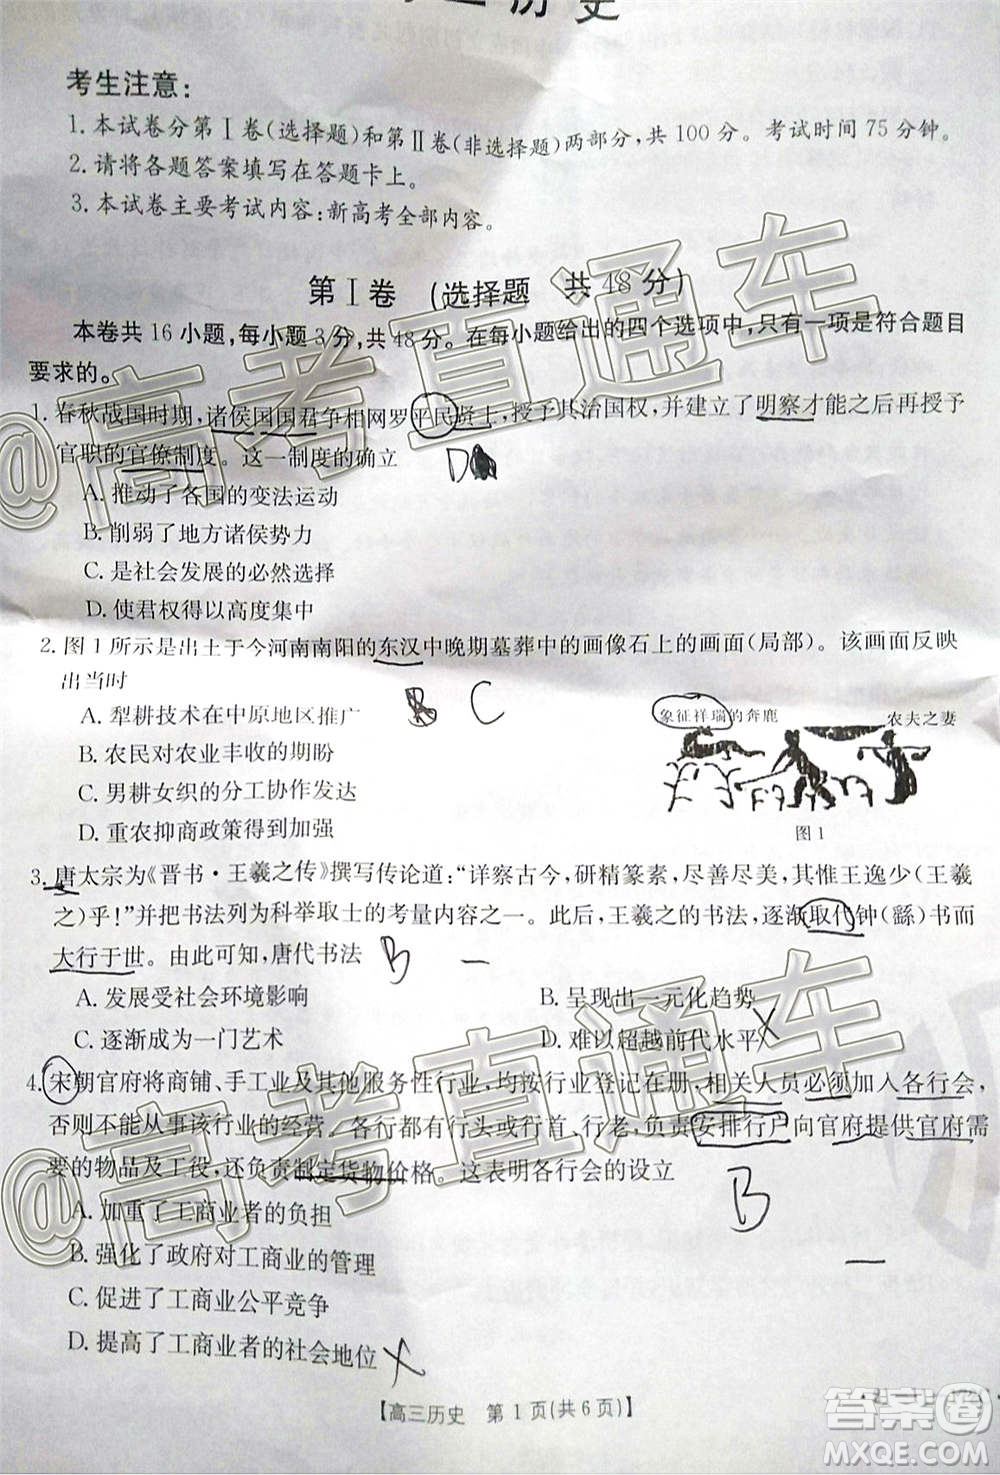 历史
考生注意：
1. 本试卷分第Ⅰ卷(选择题)和第Ⅱ卷(非选择题)两部分，共 100 分。考试时间 75 分钟。
2. 请将各题答案填写在答题卡上。
3. 本试卷主要考试内容：新高考全部内容。
第Ⅰ卷 (选择题 共 48 分)
本卷共 16 小题，每小题 3 分，共 48 分。在每小题给出的四个选项中，只有一项是符合题目
要求的。
1. 春秋战国时期，诸侯国国君争相网罗平民贤士，授予其治国权，并建立了明察才能之后再授予
官职的官僚制度。这一制度的确立 D
A. 推动了各国的变法运动
B. 削弱了地方诸侯势力
C. 是社会发展的必然选择
D. 使君权得以高度集中
2. 图 1 所示是出土于今河南南阳的东汉中晚期墓葬中的画像石上的画面(局部)。该画面反映
出当时
B C
A. 犁耕技术在中原地区推广
B. 农民对农业丰收的期盼
C. 男耕女织的分工协作发达
D. 重农抑商政策得到加强
象征祥瑞的奔鹿 农夫之妻
图 1
3. 唐太宗为《晋书·王羲之传》撰写传论道：“详察古今，研精篆素，尽善尽美，其惟王逸少(王羲
之)乎！”并把书法列为科举取士的考量内容之一。此后，王羲之的书法，逐渐取代钟(繇)书而
大行于世。由此可知，唐代书法 B
A. 发展受社会环境影响 B. 呈现出一元化趋势
C. 逐渐成为一门艺术 D. 难以超越前代水平
4. 宋朝官府将商铺、手工业及其他服务性行业，均按行业登记在册，相关人员必须加入各行会，
否则不能从事该行业的经营。今天各行都有行头或行首、行老，负责安排行户向官府提供官府需
要的物品及工役，还负责制定货物价格。这表明各行会的设立
B
A. 加重了工商业者的负担
B. 强化了政府对工商业的管理
C. 促进了工商业公平竞争
D. 提高了工商业者的社会地位
【高三历史 第 1 页(共 6 页)】
@高考直通车
@高考直通车
答案圈
MXQE.COM